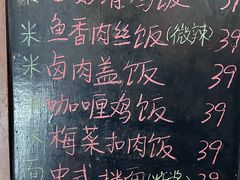 鸡饭 39
米 鱼香肉丝饭(微辣) 39
米 卤肉盖饭 39
米 咖喱鸡饭 39
梅菜扣肉饭 39
面 中式